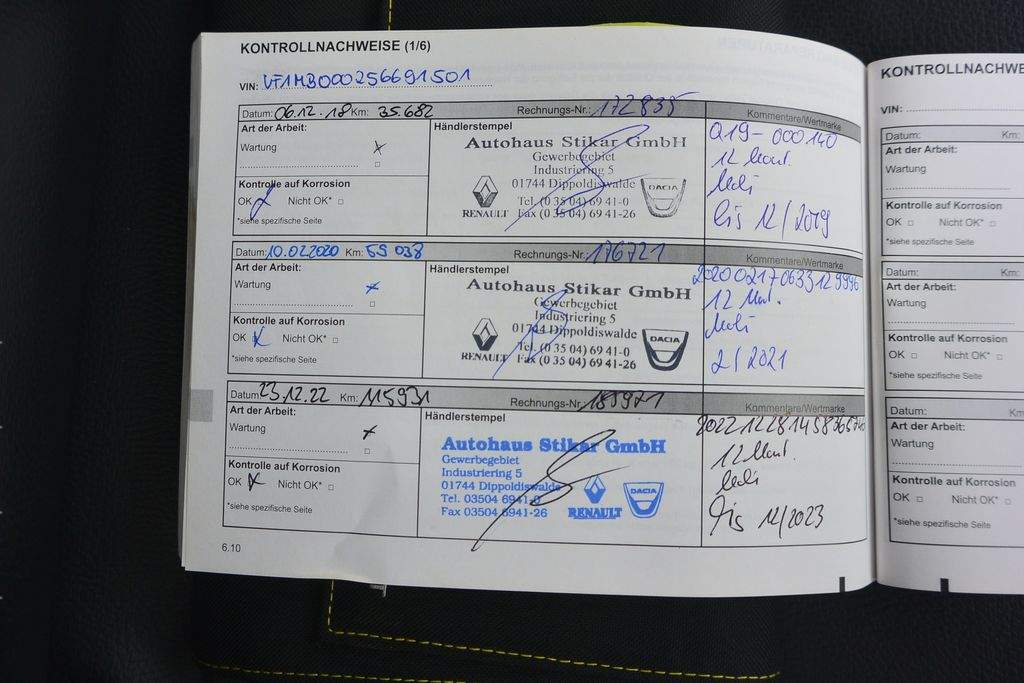 KONTROLLNACHWEISE (1/6)
VIN: VF1MB000256691501
Datum: 06.12.18 Km: 35.682 Rechnungs-Nr.: 172835 Kommentare/Wertmarke
Art der Arbeit:
Wartung x
Kontrolle auf Korrosion
OK x Nicht OK* □
*siehe spezifische Seite
Händlerstempel
Autohaus Stikar GmbH
Gewerbegebiet
Industriering 5
01744 Dippoldiswalde
Tel. (0 35 04) 69 41-0
Fax (0 35 04) 69 41-26
RENAULT
DACIA
Q19-000140
12 Mont.
Mobi
bis 12/2019
Datum: 10.02.2020 Km: 59 038 Rechnungs-Nr.: 176721 Kommentare/Wertmarke
Art der Arbeit:
Wartung x
Kontrolle auf Korrosion
OK x Nicht OK* □
*siehe spezifische Seite
Händlerstempel
Autohaus Stikar GmbH
Gewerbegebiet
Industriering 5
01744 Dippoldiswalde
Tel. (0 35 04) 69 41-0
Fax (0 35 04) 69 41-26
RENAULT
DACIA
202002170633129996
12 Mont.
Mobi
2/2021
Datum: 23.12.22 Km: 115931 Rechnungs-Nr.: Kommentare/Wertmarke
Art der Arbeit:
Wartung x
Kontrolle auf Korrosion
OK x Nicht OK* □
*siehe spezifische Seite
Händlerstempel
Autohaus Stikar GmbH
Gewerbegebiet
Industriering 5
01744 Dippoldiswalde
Tel. 03504 6941-0
Fax 03504 6941-26
RENAULT
DACIA
12 Mont.
Mobi
bis 12/2023
6.10
KONTROLLNACHWE
VIN:
Datum: Km:
Art der Arbeit:
Wartung
Kontrolle auf Korrosion
OK □ Nicht OK* □
*siehe spezifische Seite
Datum: Km:
Art der Arbeit:
Wartung
Kontrolle auf Korrosion
OK □ Nicht OK* □
*siehe spezifische Seite
Datum: Km:
Art der Arbeit:
Wartung
Kontrolle auf Korrosion
OK □ Nicht OK* □
*siehe spezifische Seite